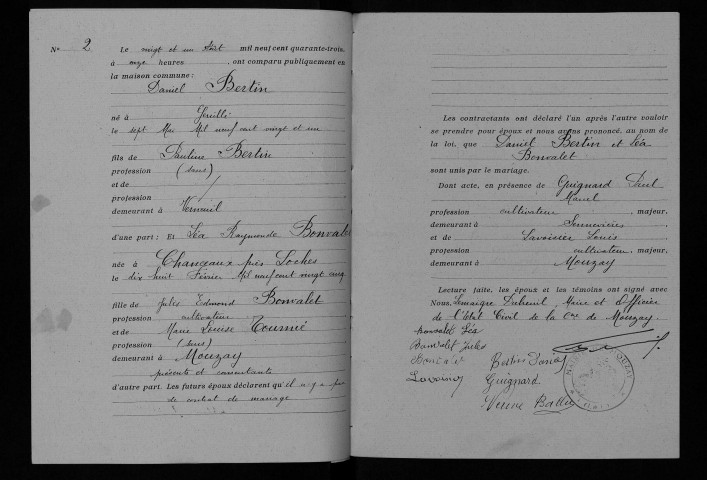 N° 2
Le vingt et un Août mil neuf cent quarante-trois,
à onze heures, ont comparu publiquement en
la maison commune :
Daniel Bertin
né à
le sept Mai Mil neuf cent vingt et un
fils de Pauline Bertin
profession (sans)
et de
profession
demeurant à Verneuil
d'une part : Et Léa Raymonde Bonvalet
née à Chanceaux près Loches
le dix huit Février Mil neuf cent vingt cinq
fille de Jules Edmond Bonvalet
profession cultivateur
et de Marie Louise Tournié
profession (sans)
demeurant à Mouzay
présents et consentants
d'autre part. Les futurs époux déclarent qu'il n'y a pas
de contrat de mariage
Les contractants ont déclaré l'un après l'autre vouloir
se prendre pour époux et nous avons prononcé, au nom de
la loi, que Daniel Bertin et Léa
Bonvalet
sont unis par le mariage.
Dont acte, en présence de Guignard Paul
Marcel
profession cultivateur, majeur,
demeurant à Sennevières
et de Lavoisier Louis
profession cultivateur, majeur,
demeurant à Mouzay
Lecture faite, les époux et les témoins ont signé avec
Nous, Lemaigre Dubreuil, Maire et Officier
de l'Etat Civil de la Cne de Mouzay.
Bonvalet Léa
Bonvalet Jules
Bertin Daniel
Guignard
Veuve